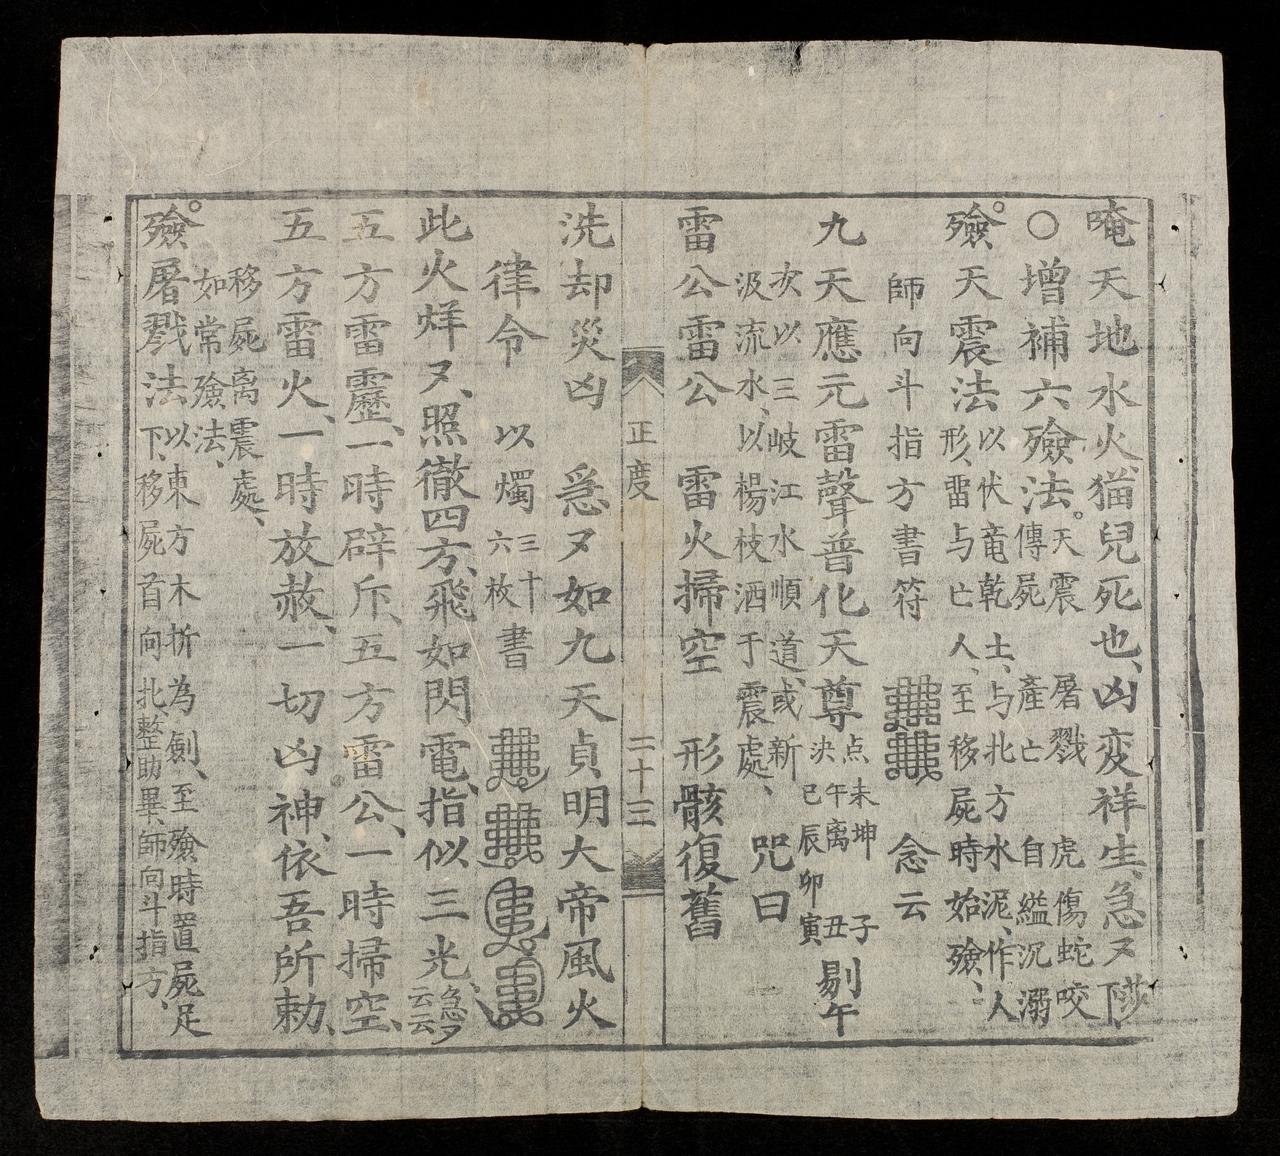 唵天地水火猫兒死也、凶变祥生、急〻
〇增補六殮法。天震傳屍 屠戮產亡 虎傷蛇咬自縊沉溺
殮天震法以伏竜乾土、与北方水泥、作人形、雷与亡人、至移屍時始殮、
師向斗指方書符 念云
九天應元雷聲普化天尊
次以三岐江水順道或新
汲流水、以楊枝洒于震處、 咒曰
雷公雷公 雷火掃空 形骸復舊
正度 二十三
洗却災凶 急〻如九天貞明大帝風火
律令 以燭三十六枚書
此火烊〻、照徹四方、飛如閃電、指似三光、急〻云云
五方雷靂、一時辟斥、五方雷公、一時掃空、
五方雷火、一時放赦、一切凶神、依吾所勅、
移屍离震處、
如常殮法、
殮屠戮法以東方木折為劍、至殮時置屍足下、移屍首向北、整助畢、師向斗指方、